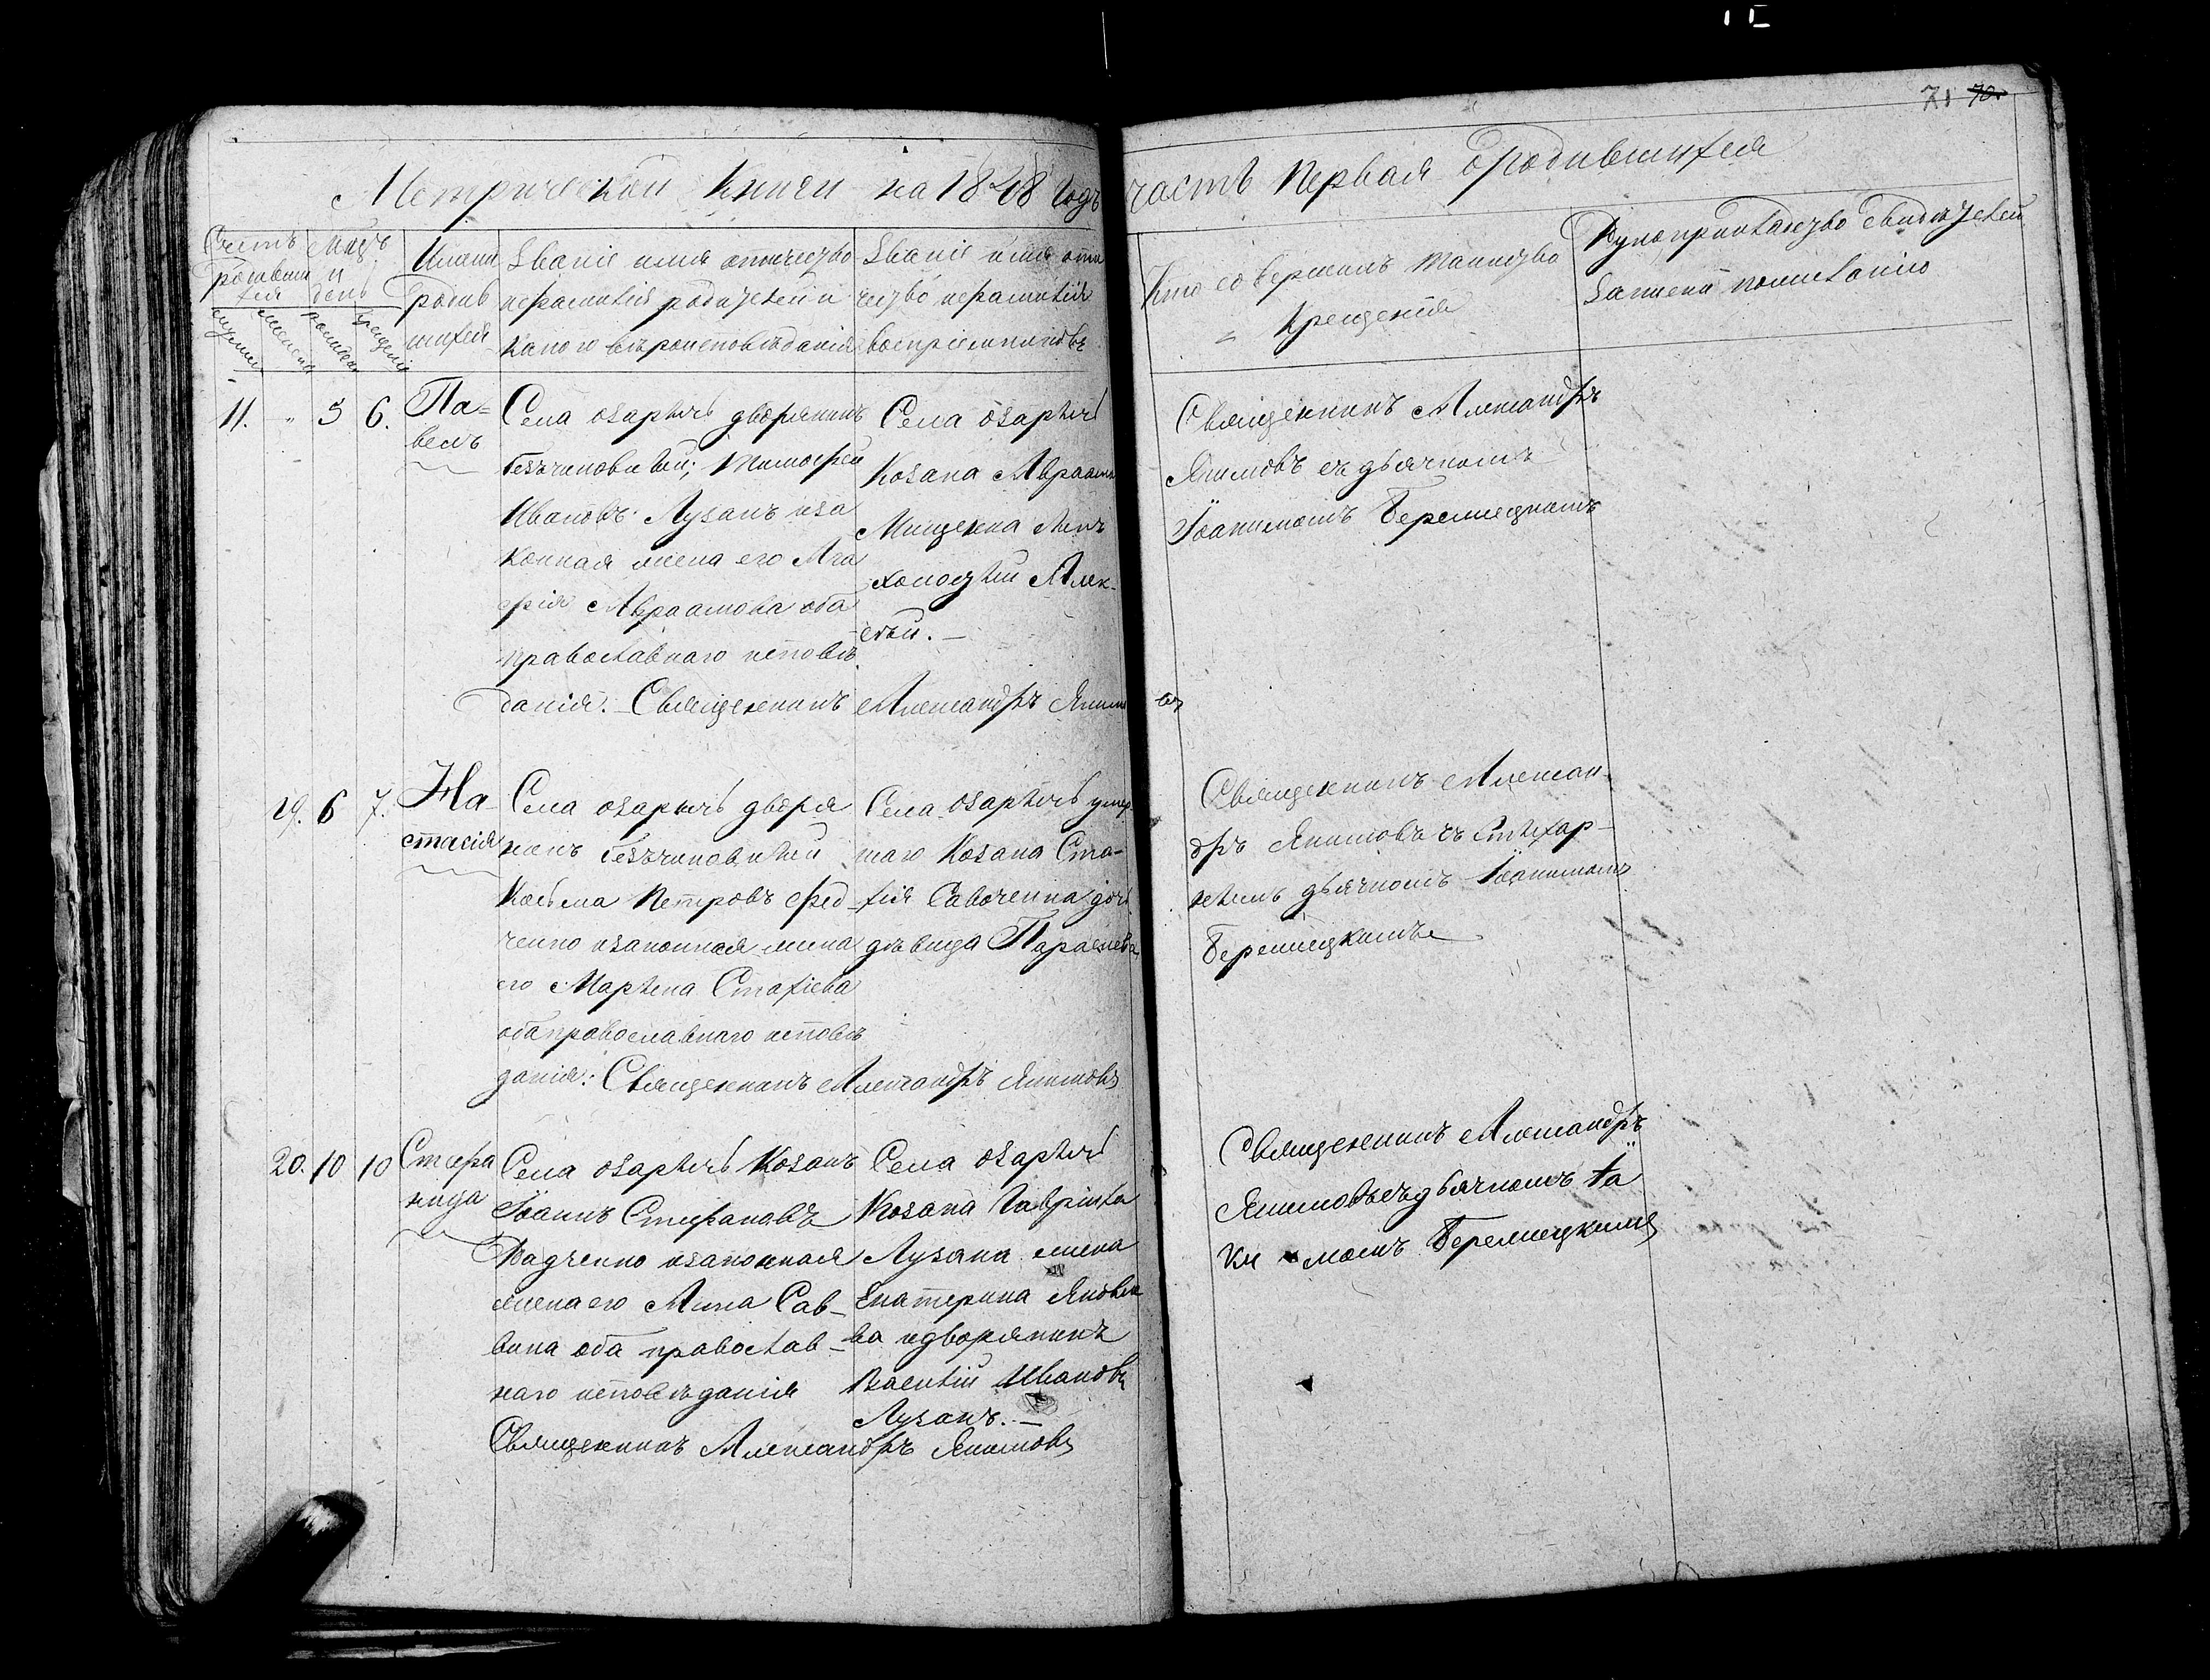 71 70.
Метрической Книги на 1848 годъ часть первая о родившихся
Счетъ родившихся
мужеска
женска
Мцъ и день
рожденія
крещенія
Имяна родившихся
Званіе имя отчество и фамилія родителей и какого вѣроисповѣданія
Званіе имя отчество и фамилія воспріемниковъ
Кто совершилъ таинство крещенія
Рукоприкладство свидѣтелей записи по желанію
11. " 5 6. Павелъ
Села Озаричъ дворянинъ
безчиновный; Тимофей
Ивановъ Лузанъ иза
конная жена его Ага
фія Авраамова оба
православнаго исповѣ
данія. Священникъ Александръ Якимовъ
Села Озаричъ
козака Авраама
Мищенка
Алек-
сѣй.
Священникъ Александръ
Якимовъ съ дьячкомъ
Іоакимомъ Бережецкимъ
19. 6 7. На-
стасія
Села Озаричъ дворя
нинъ безчиновный
Косьма Петровъ Фед-
ченко изаконная жена
его Марѳена Стахіева
оба православнаго исповѣ
данія: Священникъ Александръ Якимовъ
Села Озаричъ умер-
шаго козака Ста-
хія Савченка дочь
дѣвица Параскева
Священникъ Алексан
дръ Якимовъ съ стихар-
нымъ дьячкомъ Іоакимомъ
Бережецкимъ
20. 10 10 Стефа
нида
Села Озаричъ козакъ
Іоаннъ Стефановъ
Радченко изаконная
жена его Анна Сав-
вина оба православ-
наго исповѣданія
Священникъ Александръ Якимовъ
Села Озаричъ
козака Гавріила
Лузана жена
Екатерина Яковле
ва идворянинъ
Василій Ивановъ
Лузанъ.
Священникъ Александръ
Якимовъ съ дьячкомъ Іа
ки момъ Бережецкимъ